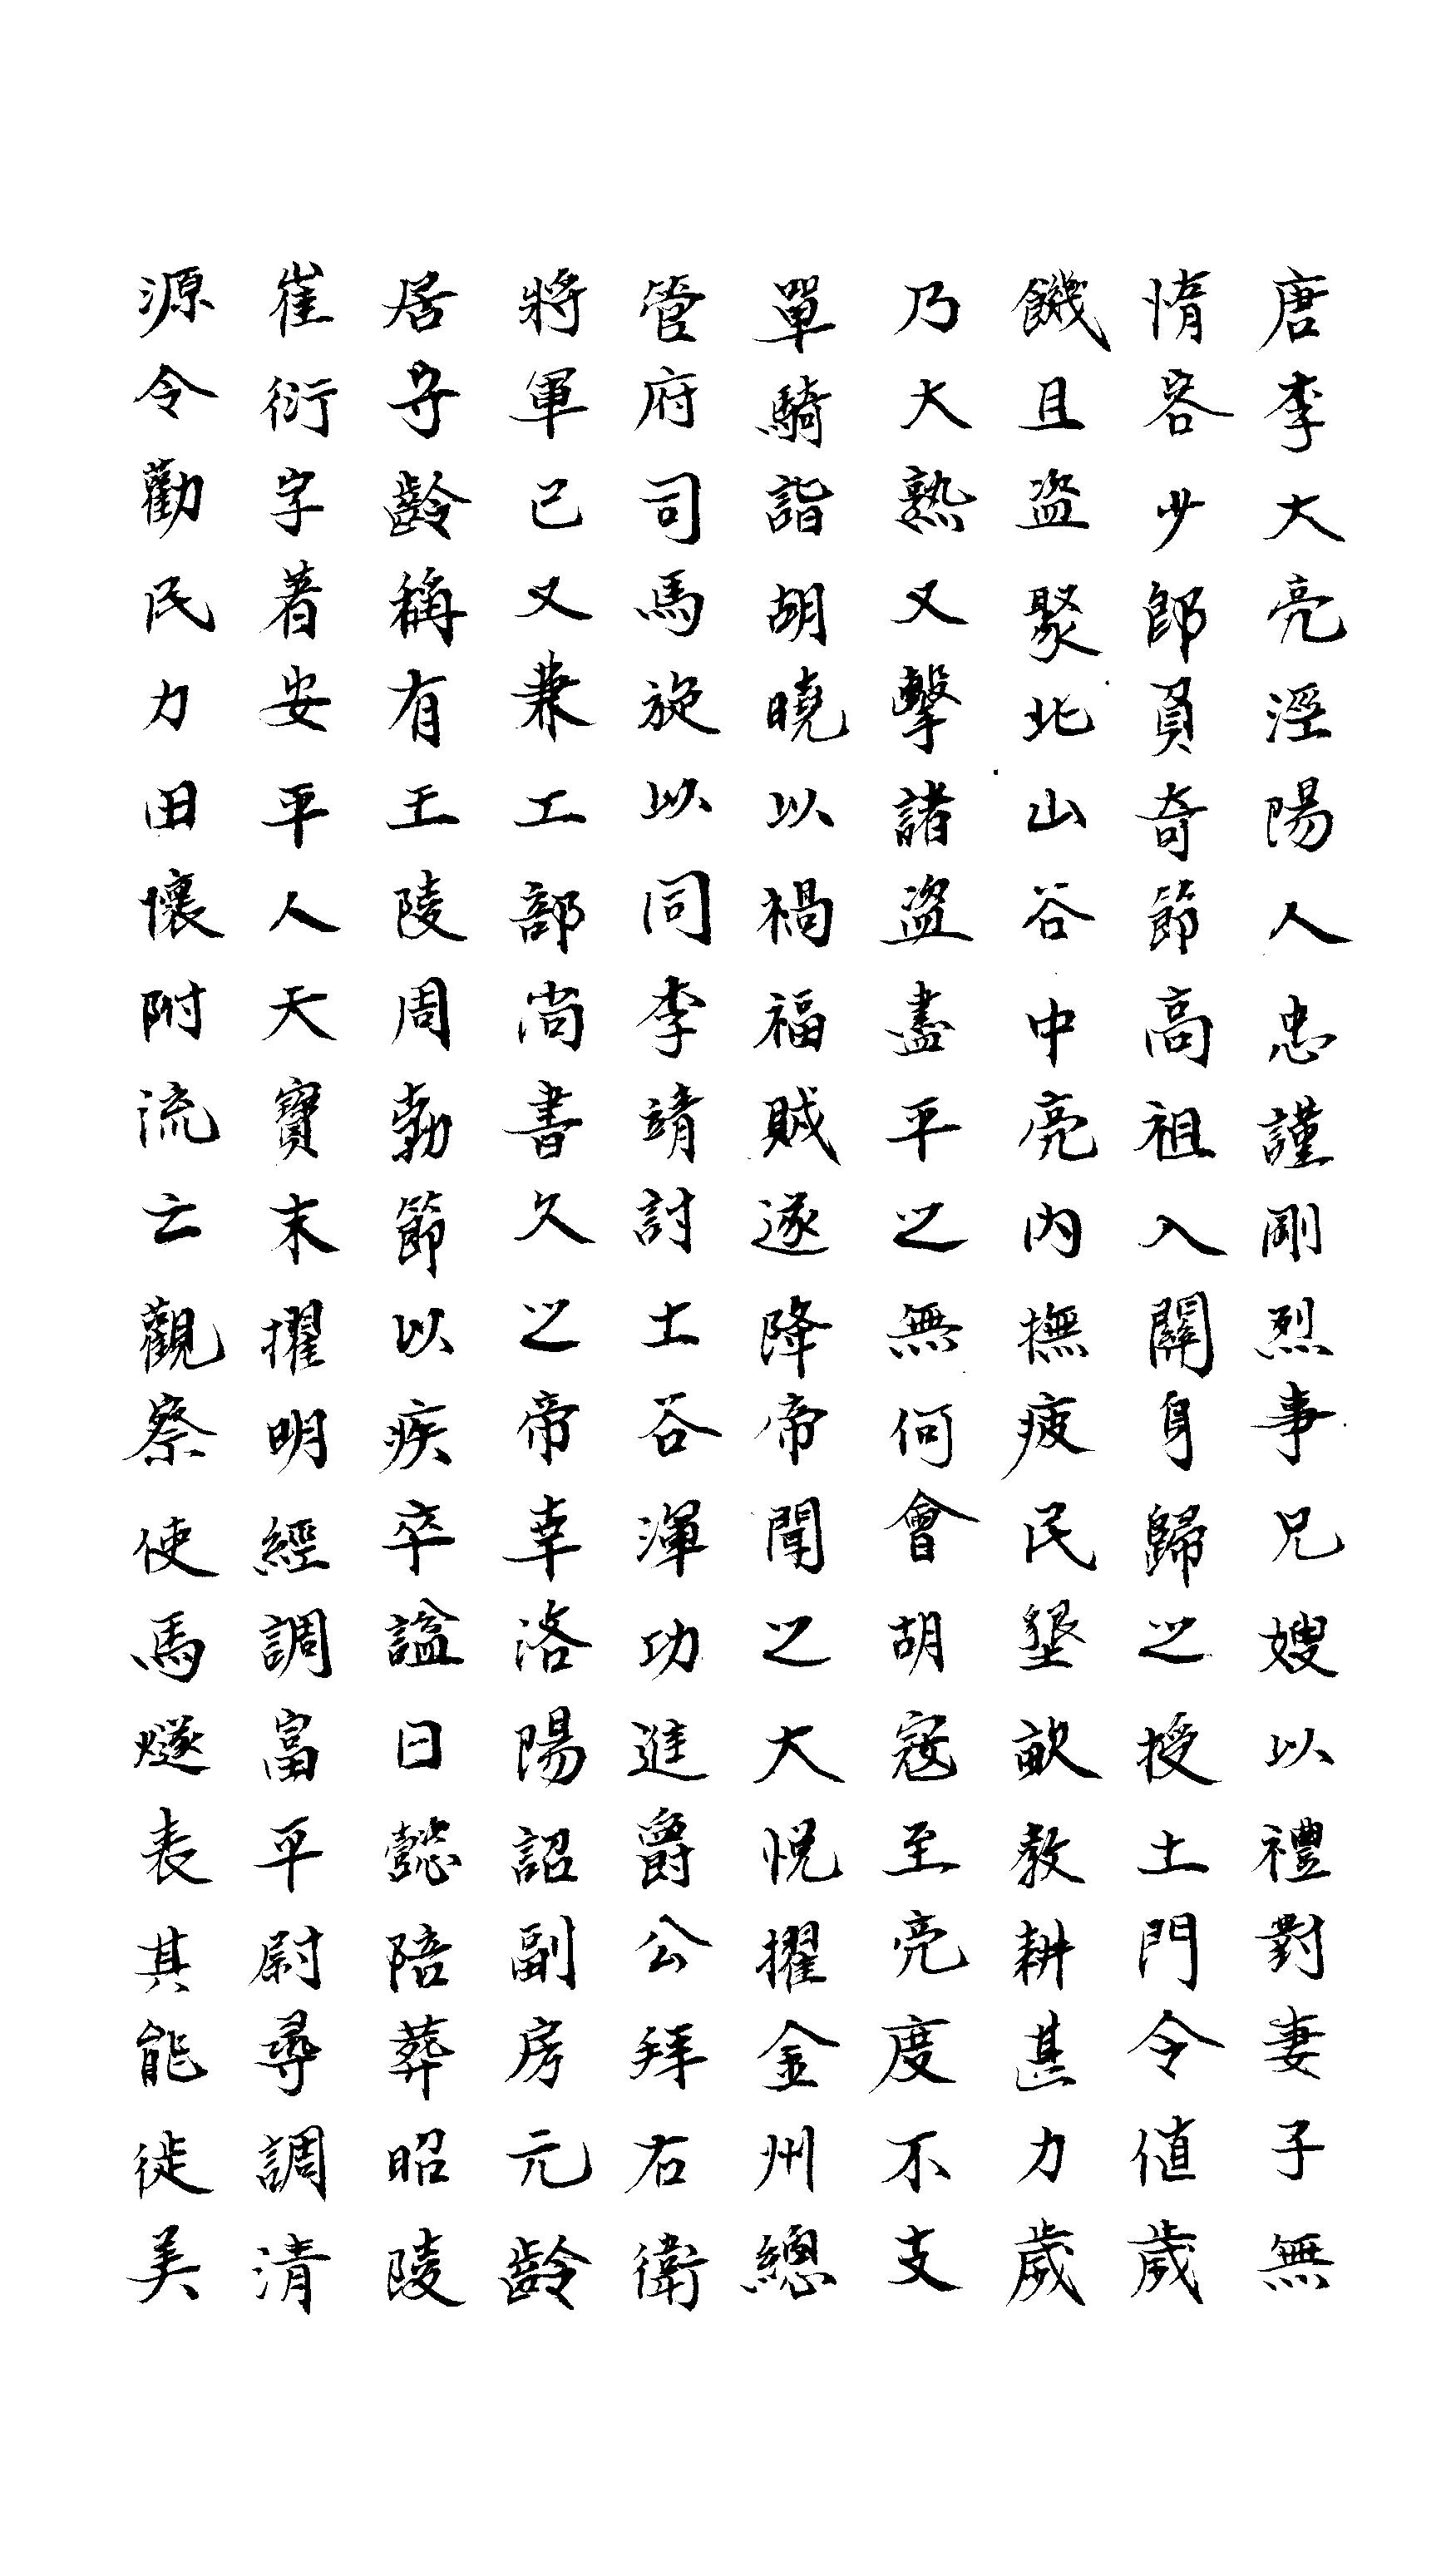 唐李大亮涇陽人忠謹剛烈事兄嫂以禮對妻子無
惰容少郎負奇節高祖入關身歸之授土門令値歲
饑且盜聚北山谷中亮內撫疲民墾畝教耕甚力歲
乃大熟又擊諸盜盡平之無何會胡寇至亮度不支
單騎詣胡曉以禍福賊遂降帝聞之大悅擢金州總
管府司馬旋以同李靖討土谷渾功進爵公拜右衛
將軍已又兼工部尚書久之帝幸洛陽詔副房元齡
居守齡稱有王陵周勃節以疾卒諡曰懿陪葬昭陵
崔衍字著安平人天寶末擢明經調富平尉尋調清
源令勸民力田懷附流亡觀察使馬燧表其能徙美